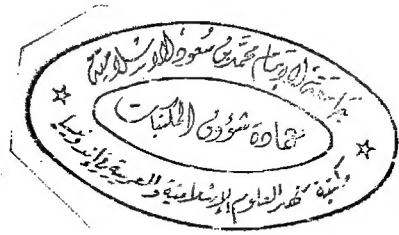 جامعة الإمام محمد بن سعود الإسلامية
عمادة شؤون المكتبات
مكتبة معهد العلوم الإسلامية والعربية في اندونيسيا